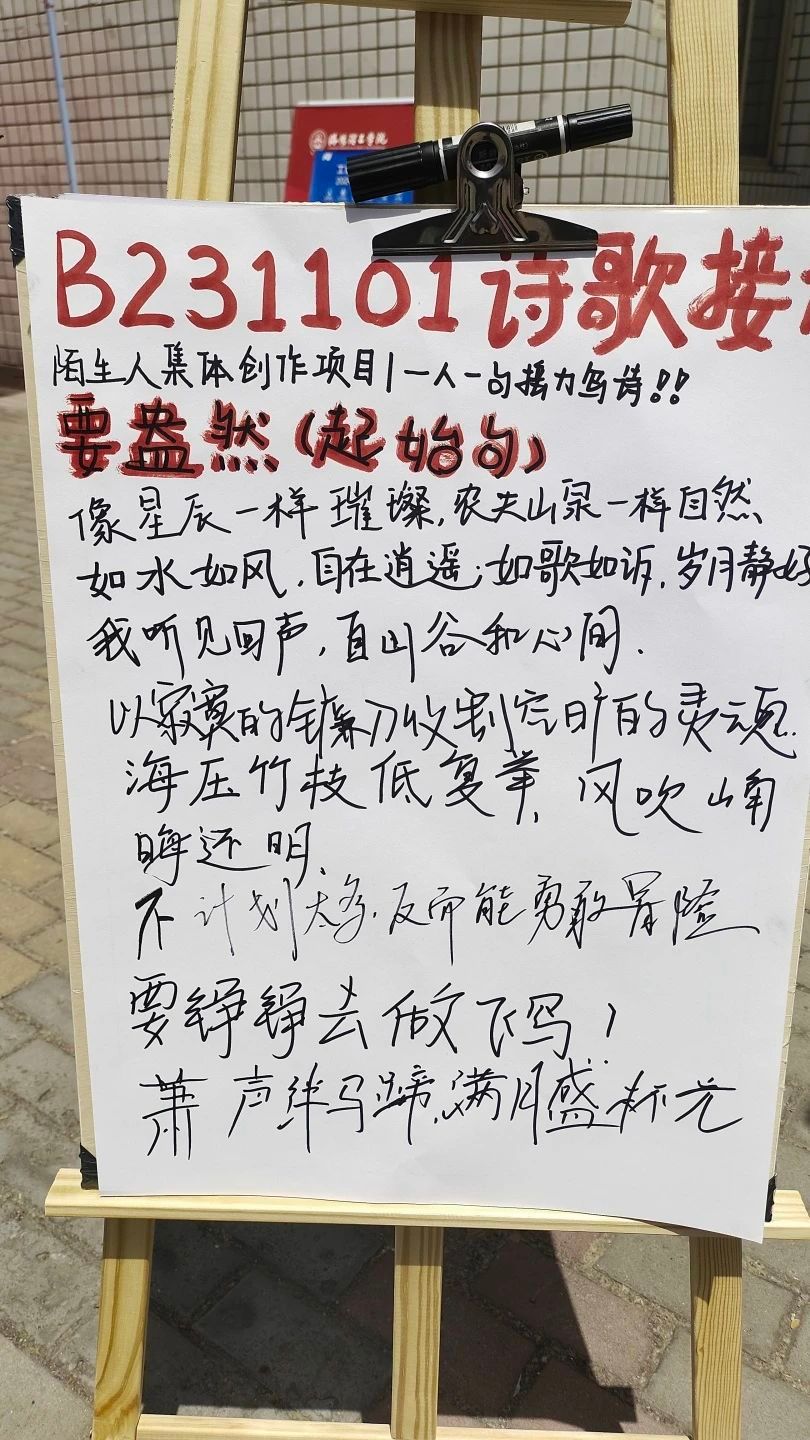 B231101诗歌接
陌生人集体创作项目|一人一句接力写诗!!
要盎然(起始句)
像星辰一样璀璨,农夫山泉一样自然
如水如风,自在逍遥;如歌如诉,岁月静好
我听见回声,自山谷和心间.
以寂寞的镰刀收割空旷的灵魂.
海压竹枝低复举,风吹山角
晦还明、
不计划太多.反而能勇敢冒险
要铮铮去做飞鸟!
萧声绊马蹄,满月盛杯光